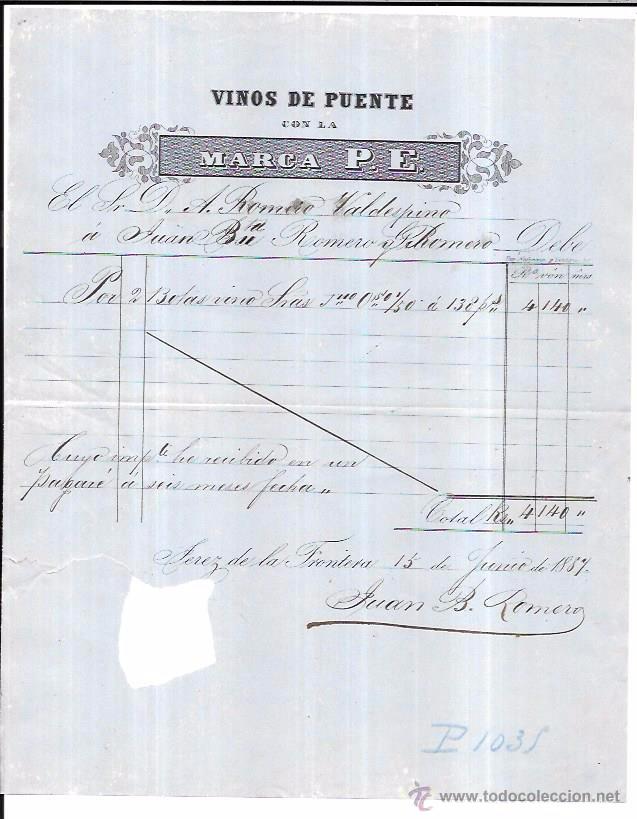 VINOS DE PUENTE
CON LA
MARCA P. E.
El Sr. D. A. Romero Valdespino
á Juan Bta Romero y Romero Debe
Rs. von mrs
Por 2 Botas vino á 138 ps 4 140 "
Cuyo impte he recibido en un
pagaré á seis meses fecha "
Total Rs " 4 140 "
Jerez de la Frontera 15 de Junio de 1857.
Juan B. Romero
P1035
tc www.todocoleccion.net